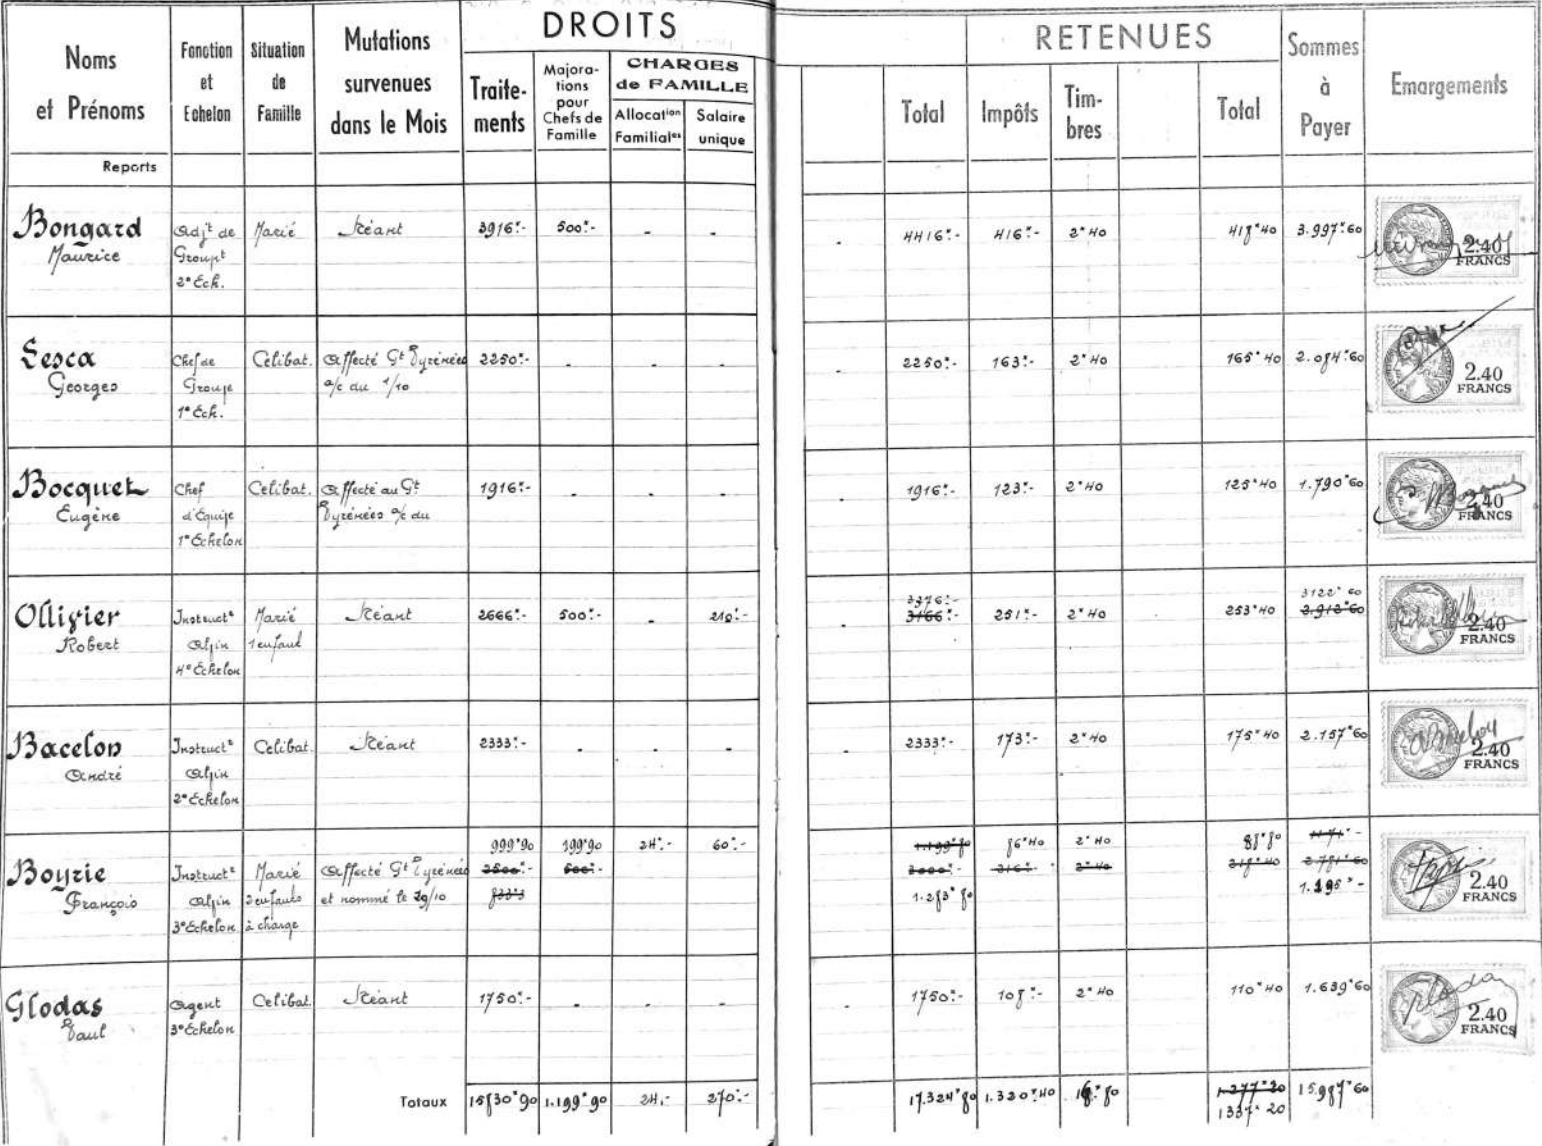 DROITS
RETENUES
Noms et Prénoms
Fonction et Echelon
Situation de Famille
Mutations survenues dans le Mois
Traitements
Majorations pour Chefs de Famille
CHARGES de FAMILLE
Allocation Familiales
Salaire unique
Total
Impôts
Timbres
Total
Sommes à Payer
Emargements
Reports
Bongard Maurice
Adjt de Groupt 2e Ech.
Marié
Néant
3916.-
500.-
-
-
-
4416.-
416.-
2.40
418.40
3.997.60
2.40 FRANCS
Lesca Georges
Chef de Groupe 1e Ech.
Célibat.
Affecté Gt Pyrénées a/c du 1/10
2250.-
-
-
-
-
2250.-
163.-
2.40
165.40
2.084.60
2.40 FRANCS
Bocquet Eugène
Chef d'Equipe 1e Echelon
Célibat.
Affecté au Gt Pyrénées a/c du
1916.-
-
-
-
-
1916.-
123.-
2.40
125.40
1.790.60
2.40 FRANCS
Ollivier Robert
Instructr Alpin 4e Echelon
Marié 1 enfant
Néant
2666.-
500.-
-
210.-
-
3376.-
3166.-
251.-
2.40
253.40
3122.60
2.912.60
2.40 FRANCS
Bacelon André
Instructr Alpin 2e Echelon
Célibat.
Néant
2333.-
-
-
-
-
2333.-
173.-
2.40
175.40
2.157.60
2.40 FRANCS
Boyrie François
Instructr Alpin 3e Echelon
Marié 2 enfants à charge
Affecté Gt Pyrénées et nommé le 19/10
999.90
2500.-
833.3
199.90
500.-
24.-
60.-
1.199.80
3000.-
1.283.80
86.40
316.-
2.40
2.40
88.80
318.40
2.781.60
1.195.-
2.40 FRANCS
Glodas Paul
Agent 3e Echelon
Célibat.
Néant
1750.-
-
-
-
-
1750.-
108.-
2.40
110.40
1.639.60
2.40 FRANCS
Totaux
15830.90
1.199.90
24.-
270.-
17.324.80
1.320.40
16.80
1.277.20
1337.20
15.987.60